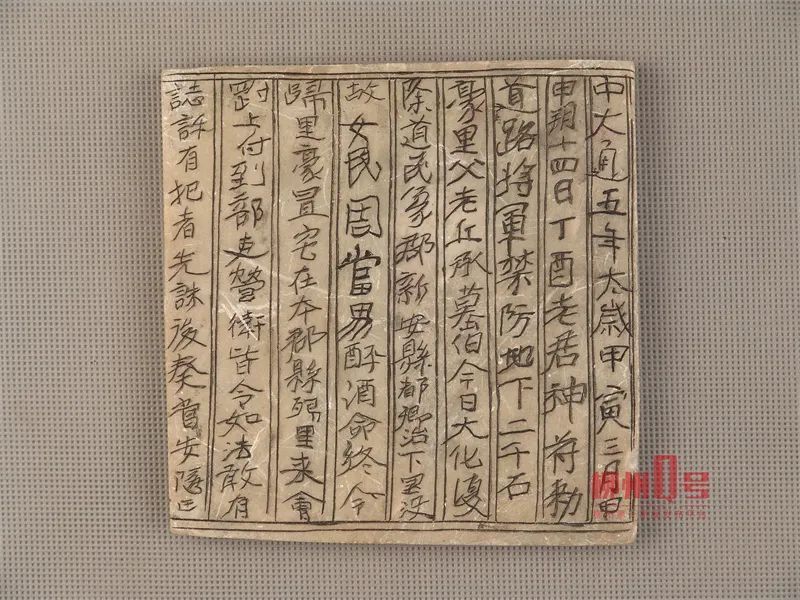 中大通五年太歲甲寅三月甲
申朔十四日丁酉老君神符勑
道路將軍禁防地下二千石
豪里父老丘承墓伯今日大化優
条道民象郡新安縣都鄉治下里没
故女民周當男醉酒命終今
歸里豪置宅在本郡縣 里來會
對上付到部吏營衛皆令如法敢有
誌訴有犯者先誅後奏 安隱
柳州1号